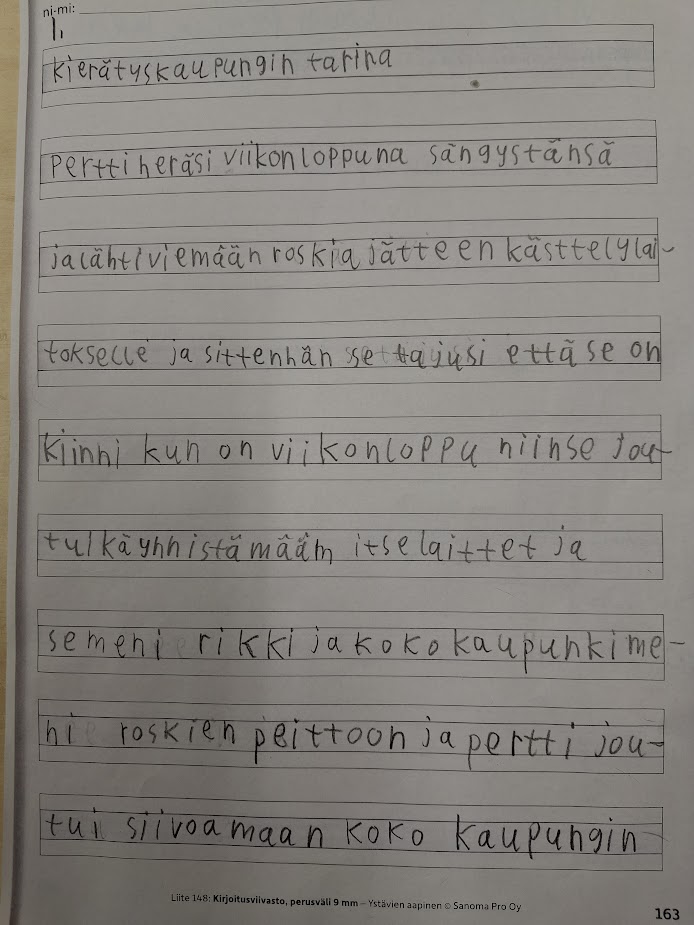 ni-mi:
1,
kierätyskaupungin tarina
pertti heräsi viikonloppuna sängystänsä
ja lähti viemään roskia jätteen kästtelylai-
tokselle ja sittenhän se tajusi että se on
kiinni kun on viikonloppu niinse jou-
tul käynnistämääm itse laittet ja
se meni rikki ja koko kaupunki me-
ni roskien peittoon ja pertti jou-
tui siivoamaan koko kaupungin
Liite 148: Kirjoitusviivasto, perusväli 9 mm – Ystävien aapinen © Sanoma Pro Oy
163